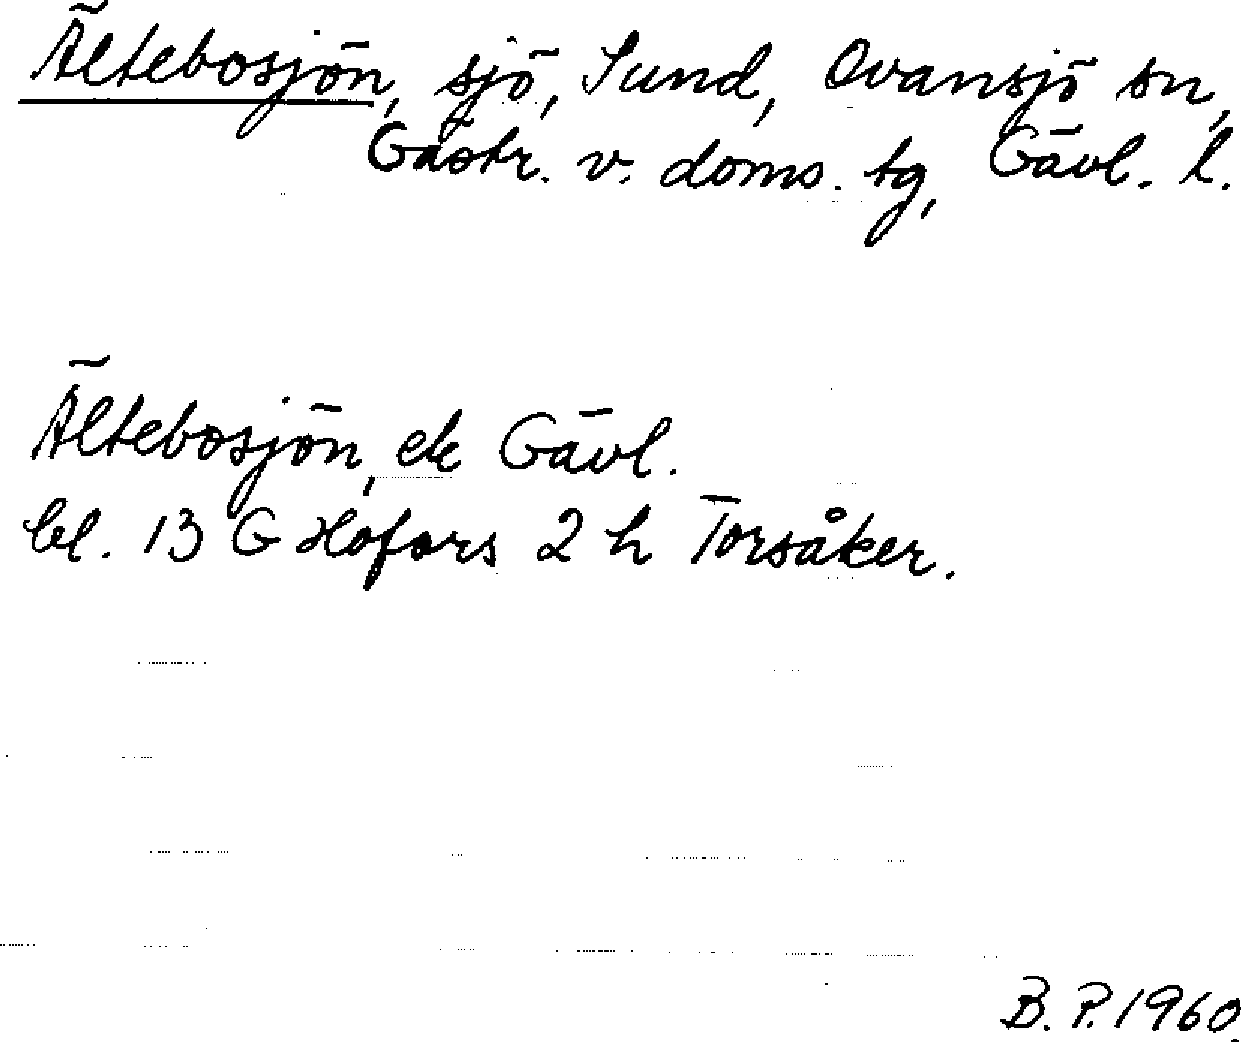 Ältebosjön, sjö, Sund, Ovansjö sn,
Gästr. v. doms. tg, Gävl. l.
Ältebosjön, ek Gävl.
bl. 13 G Hofors 2 h Torsåker.
B. P. 1960.